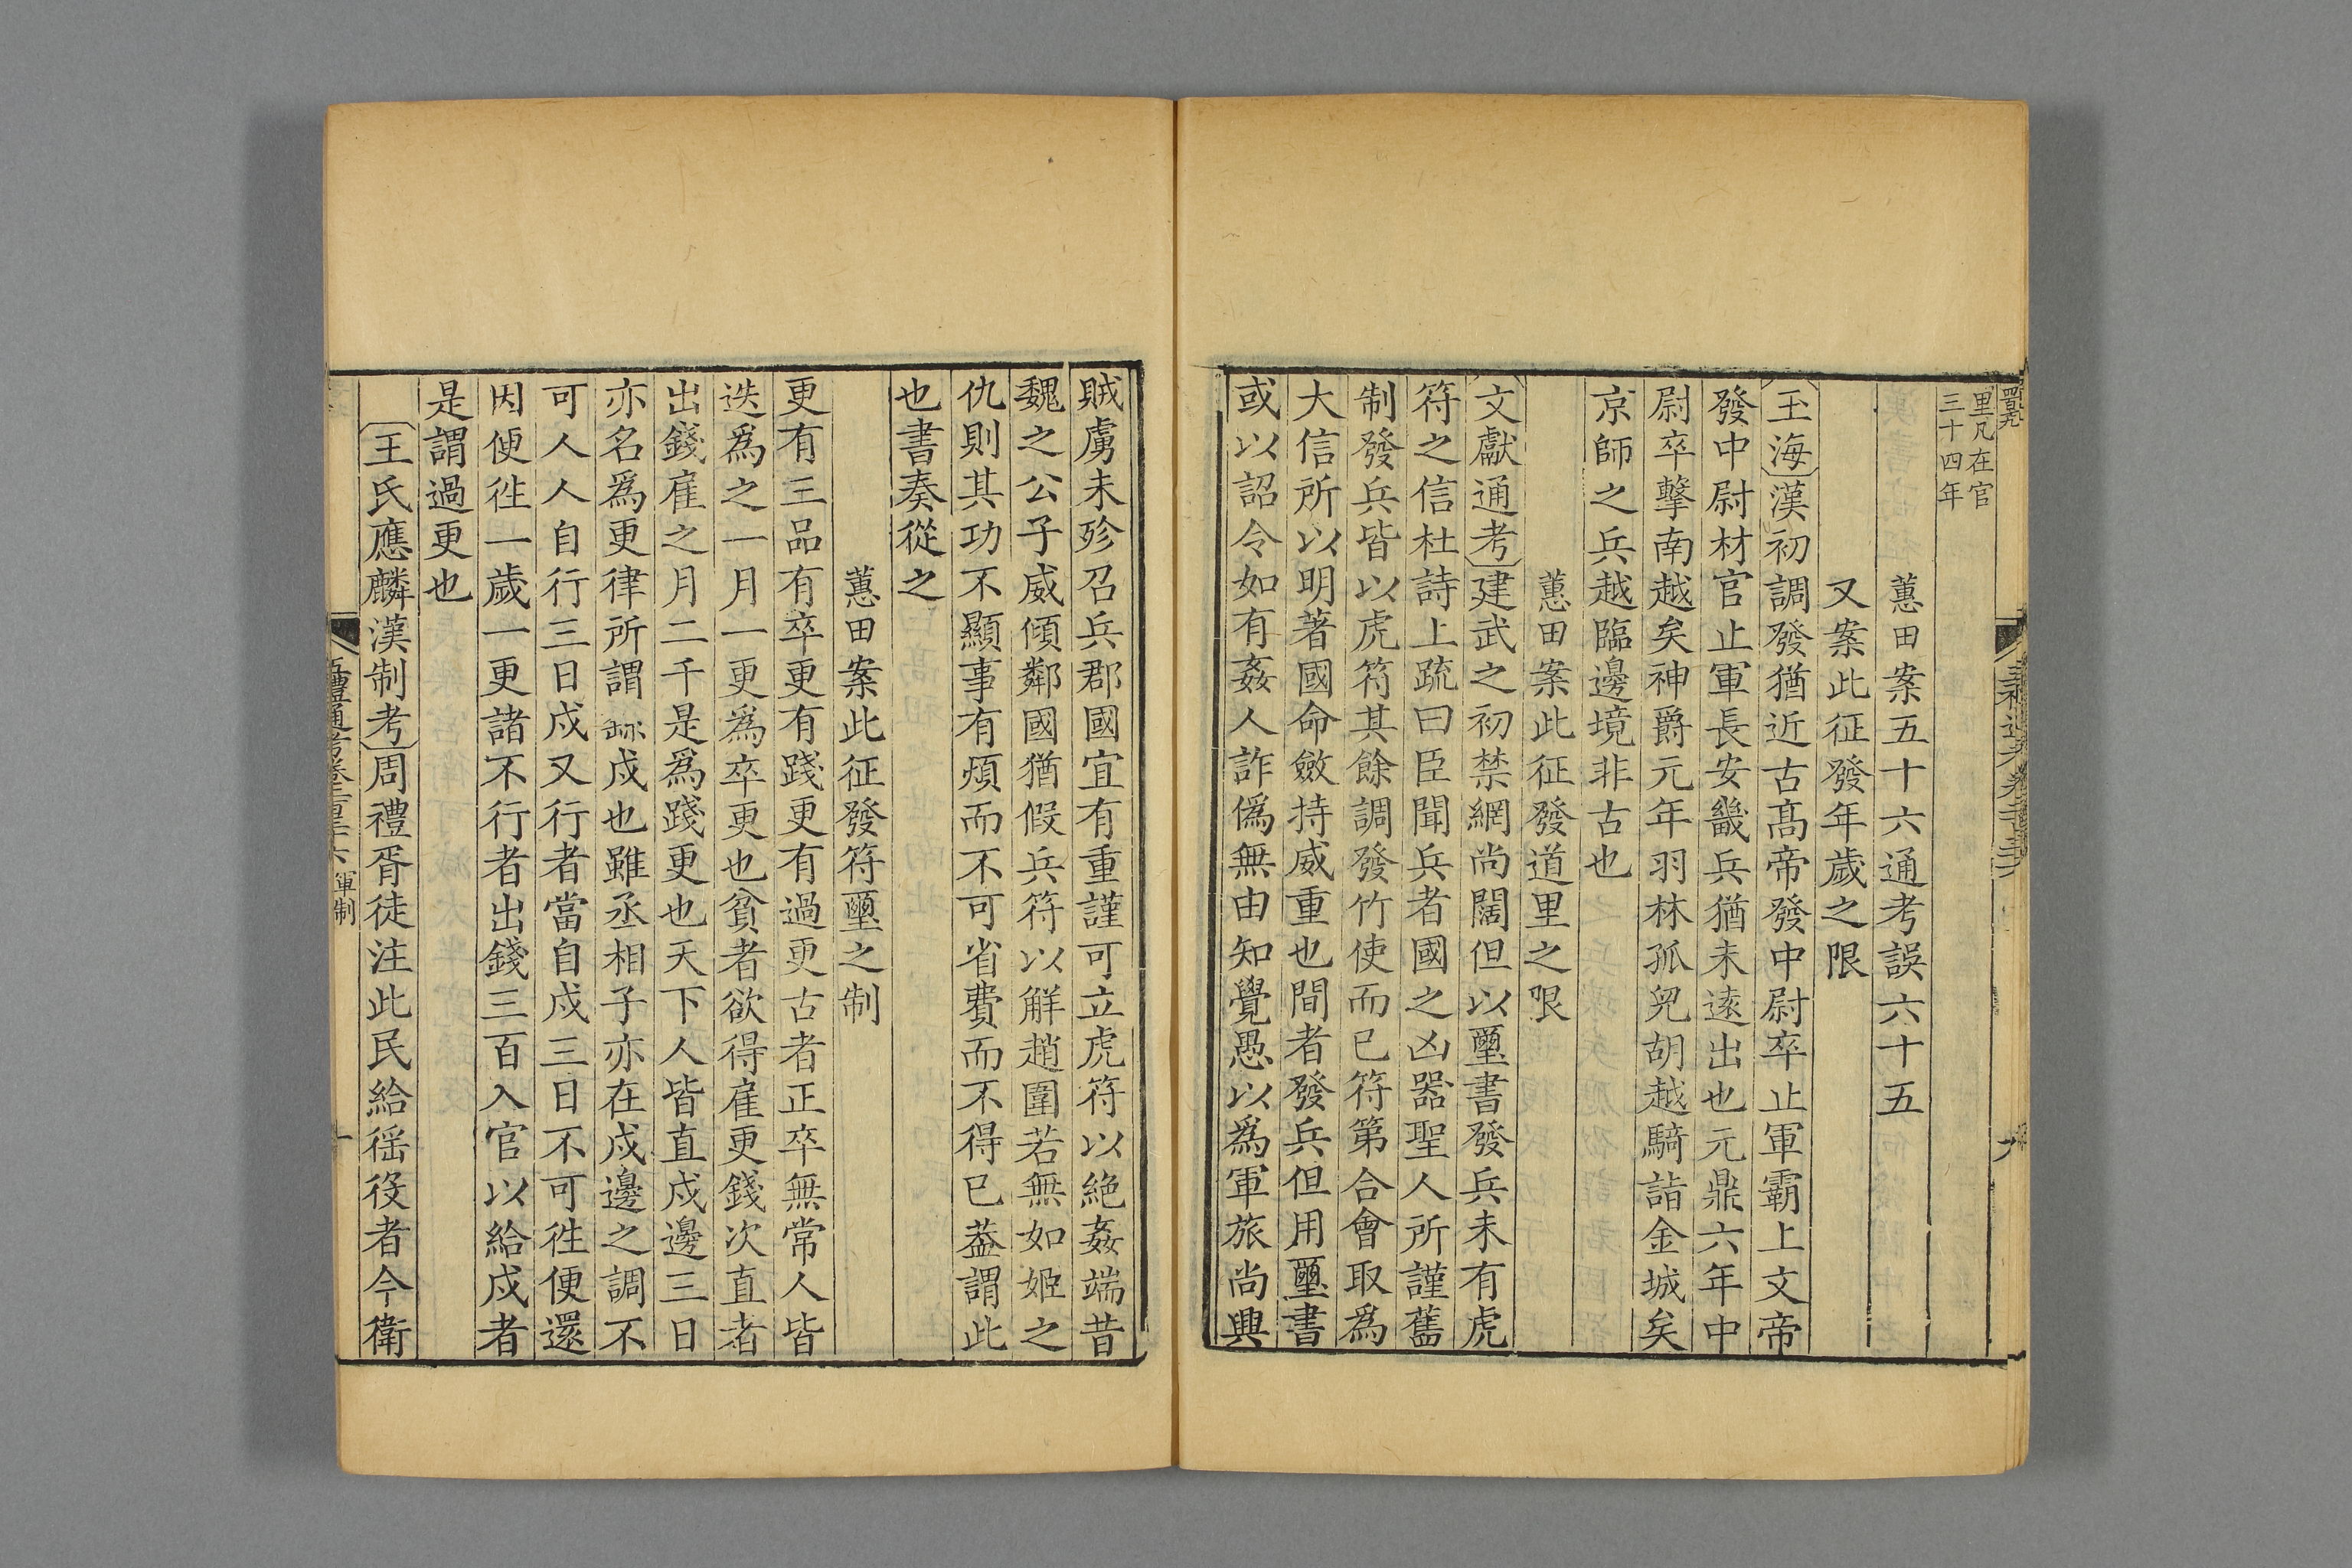 里凡在官
三十四年
蕙田案五十六通考誤六十五
又案此征發年歲之限
玉海漢初調發猶近古髙帝發中尉卒止軍霸上文帝
發中尉材官止軍長安畿兵猶未逺出也元鼎六年中
尉卒擊南越矣神爵元年羽林孤兒胡越騎詣金城矣
京師之兵越臨邊境非古也
蕙田案此征發道里之限
文獻通考建武之初禁網尚闊但以璽書發兵未有虎
符之信杜詩上疏曰臣聞兵者國之凶器聖人所謹舊
制發兵皆以虎符其餘調發竹使而已符第合會取爲
大信所以明著國命斂持威重也間者發兵但用璽書
或以詔令如有姦人詐僞無由知覺愚以爲軍旅尚興
賊虜未殄召兵郡國宜有重謹可立虎符以絶姦端昔
魏之公子威傾鄰國猶假兵符以解趙圍若無如姬之
仇則其功不顯事有煩而不可省費而不得已葢謂此
也書奏從之
蕙田案此征發符璽之制
更有三品有卒更有踐更有過更古者正卒無常人皆
迭爲之一月一更爲卒更也貧者欲得雇更錢次直者
出錢雇之月二千是爲踐更也天下人皆直戍邊三日
亦名爲更律所謂繇戍也雖丞相子亦在戍邊之調不
可人人自行三日戍又行者當自戍三日不可徃便還
因便徃一歲一更諸不行者出錢三百入官以給戍者
是謂過更也
王氏應麟漢制考周禮胥徒注此民給徭役者今衛
五禮通考卷二百三十六 軍制